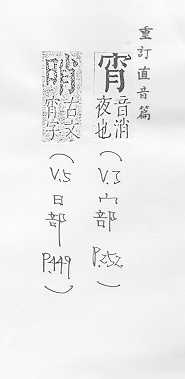 重訂直音篇
宵
音消
夜也
(V.3 宀部 P.252)
古文
宵字
(V.5 日部 P.449)